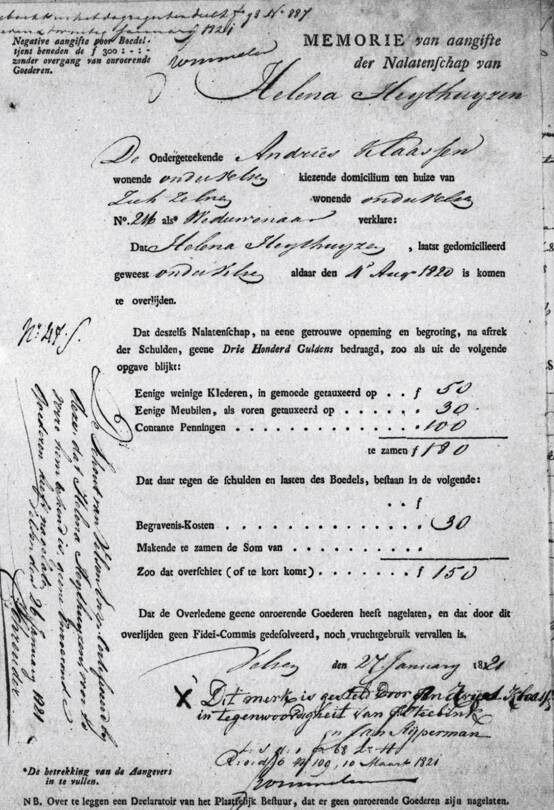 No 887
January 1821
Negative aangifte voor Boedel-
tjens beneden de ƒ 300 : - : -
zonder overgang van onroerende
Goederen.
MEMORIE van aangifte
der Nalatenschap van
Helena Heythuyzen
De Ondergeteekende Andries Klaassen
wonende onder Velsen kiezende domicilium ten huize van
Zich Zelve wonende onder Velsen
No. 216 als* Weduwenaar verklare:
Dat Helena Heythuyzen, laatst gedomicilieerd
geweest onder Velsen aldaar den 4 Aug 1820 is komen
te overlijden.
Dat deszelfs Nalatenschap, na eene getrouwe opneming en begroting, na aftrek
der Schulden, geene Drie Honderd Guldens bedraagd, zoo als uit de volgende
opgave blijkt:
Eenige weinige Klederen, in gemoede getauxeerd op . . ƒ 50
Eenige Meubilen, als voren getauxeerd op . . . . . . 30
Contante Penningen . . . . . . . . . . 100
te zamen ƒ 180
Dat daar tegen de schulden en lasten des Boedels, bestaan in de volgende:
. . ƒ
Begravenis-Kosten . . . . . . . . . . 30
Makende te zamen de Som van . . . . . . .
Zoo dat overschiet (of te kort komt) . . . . . . . ƒ 150
Dat de Overledene geene onroerende Goederen heeft nagelaten, en dat door dit
overlijden geen Fidei-Commis gedesolveerd, noch vruchtgebruik vervallen is.
Velsen den 27 January 1821
X Dit merk is gesteld door Andries Klaassen
in tegenwoordigheid van
Jan Kijperman
10 Maart 1821
*De betrekking van de Aangevers
in te vullen.
NB. Over te leggen een Declaratoir van het Plaatselijk Bestuur, dat er geen onroerende Goederen zijn nagelaten.
No 47.
De Schout van Velsen
deze dat Helena Heythuyzen voor zo
verre hem bekend is, geene Onroerende
Goederen heeft nagelaten
Velsen den 26 January 1821